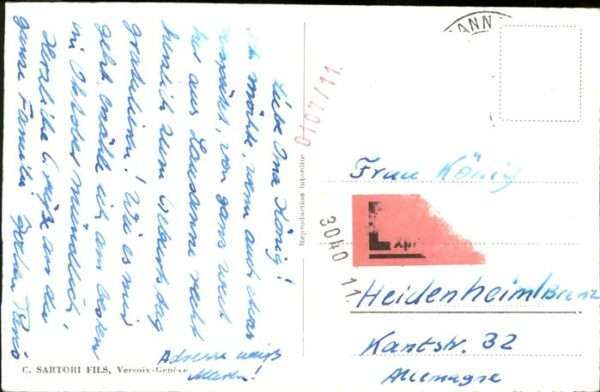 Liebe Oma König!
Ich möchte, wenn auch etwas
verspätet, von ganz weit
her aus Lausanne recht
herzlich zum Geburtstag
gratulieren! Wie es mir
geht erzähle ich am besten
im Oktober mündlich!
Herzliche Grüße an die
ganze Familie
Adresse weiß
C. SARTORI FILS, Versoix-Genève
Reproduction interdite
0107/11
3040 11
ANN
Frau König
Heidenheim/Brenz
Kantstr. 32
Allemagne